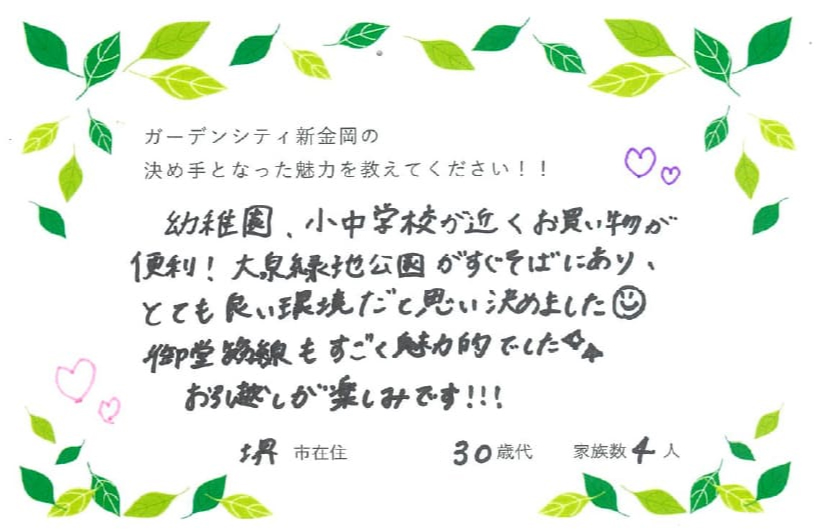 ガーデンシティ新金岡の
決め手となった魅力を教えてください！！
幼稚園、小中学校が近くお買い物が
便利！大泉緑地公園がすぐそばにあり、
とても良い環境だと思い決めました
御堂筋線もすごく魅力的でした
お引越しが楽しみです!!!
堺市在住 30歳代 家族数4人